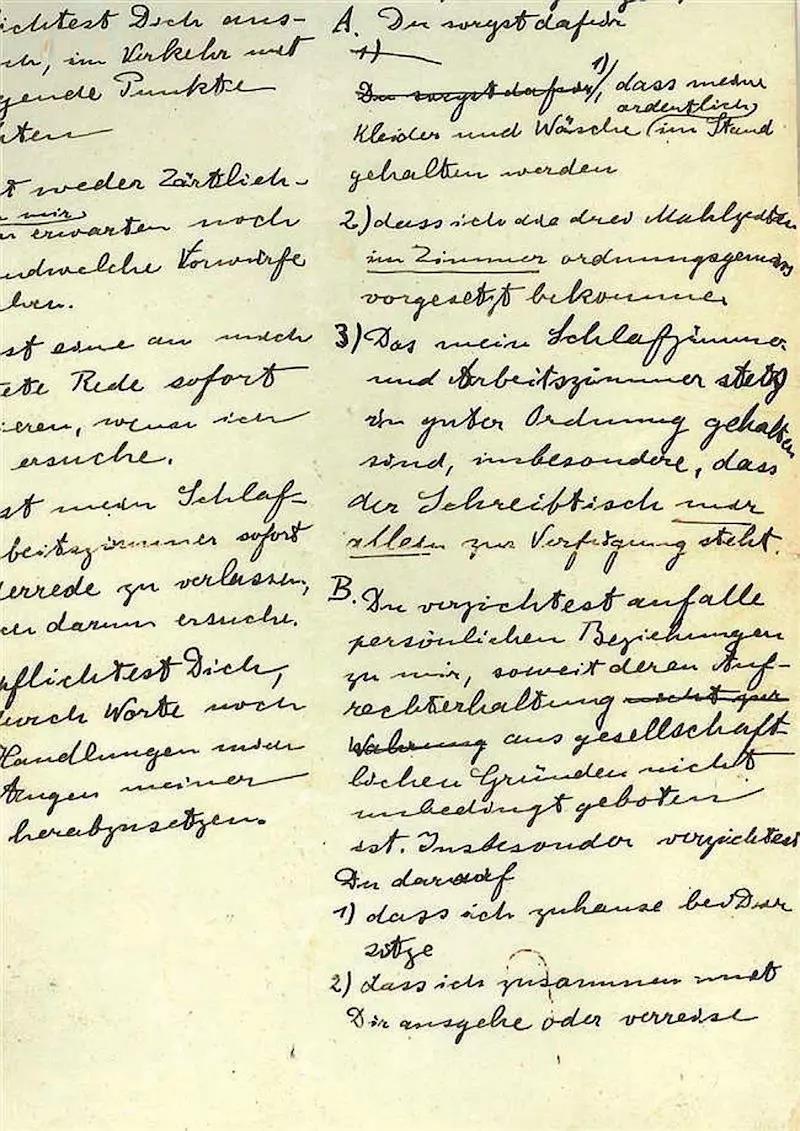 ichtest Dich aus-
ch, im Verkehr mit
gende Punkte
hten
st weder Zärtlich-
n mir
n erwarten noch
ndwelche Vorwürfe
chen.
st eine an mich
tete Rede sofort
ieren, wenn ich
ersuche.
st mein Schlaf-
beitszimmer sofort
derrede zu verlassen,
ich darum ersuche.
pflichtest Dich,
durch Worte noch
Handlungen mich
Augen meiner
herabzusetzen.
A. Du sorgst dafür
1)
Du sorgst dafür 1), dass meine
ordentlich
Kleider und Wäsche im Stand
gehalten werden
2) dass ich die drei Mahlzeiten
im Zimmer ordnungsgemäss
vorgesetzt bekomme
3) Das mein Schlafzimmer
und Arbeitszimmer stets
in guter Ordnung gehalten
sind, insbesondere, dass
der Schreibtisch mir
allein zur Verfügung steht.
B. Du verzichtest auf alle
persönlichen Beziehungen
zu mir, soweit deren Auf-
rechterhaltung nicht zur
Wahrung aus gesellschaft-
lichen Gründen nicht
unbedingt geboten
ist. Insbesonder verzichtest
Du darauf
1) dass ich zuhause bei Dir
sitze
2) dass ich zusammen mit
Dir ausgehe oder verreise